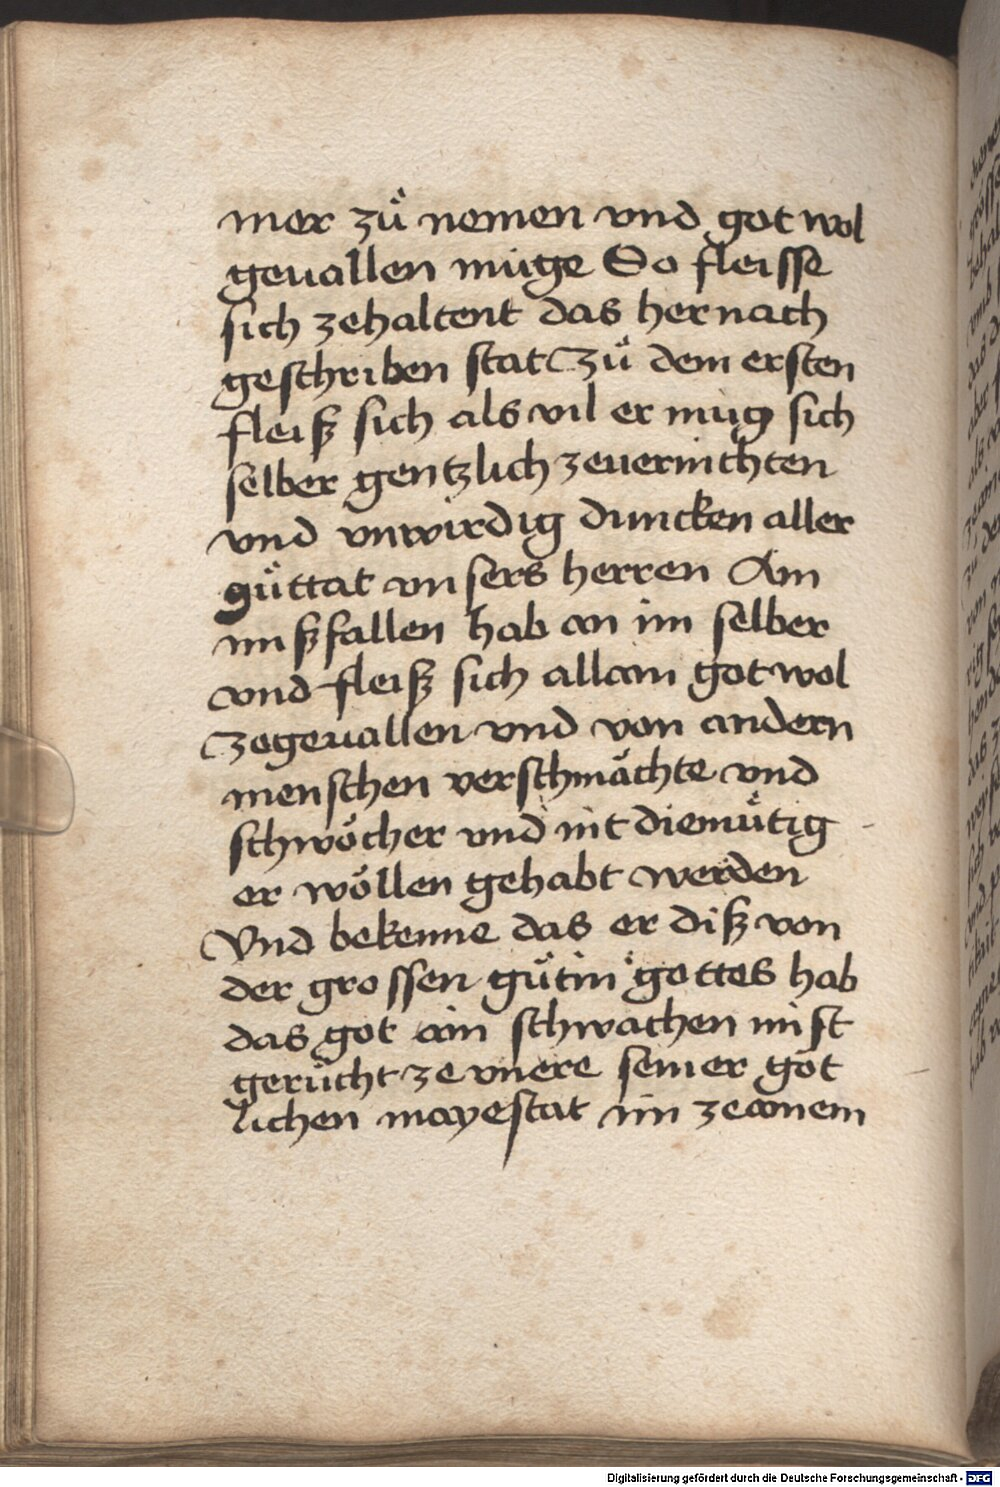 mer zů nemen vnd got wol
geuallen müge So fleisse
sich zehaltent das hernach
geschriben stat Zů dem ersten
fleiß sich als vil er mug sich
selber gentzlich zeuernichten
vnd vnwirdig duncken aller
gůttat vnsers herren Ain
mißfallen hab an im selber
vnd fleiß sich allain got wol
Zegeuallen vnd von andern
menschen verschmächte vnd
schwöcher vnd nit diemůtig
er wöllen gehabt werden
Vnd bekenne das er diß von
der grossen gůtin gottes hab
das got ain schwachen mist
gerůcht ze vnere seiner got
lichen mayestat im ze ainem
Digitalisierung gefördert durch die Deutsche Forschungsgemeinschaft - DFG